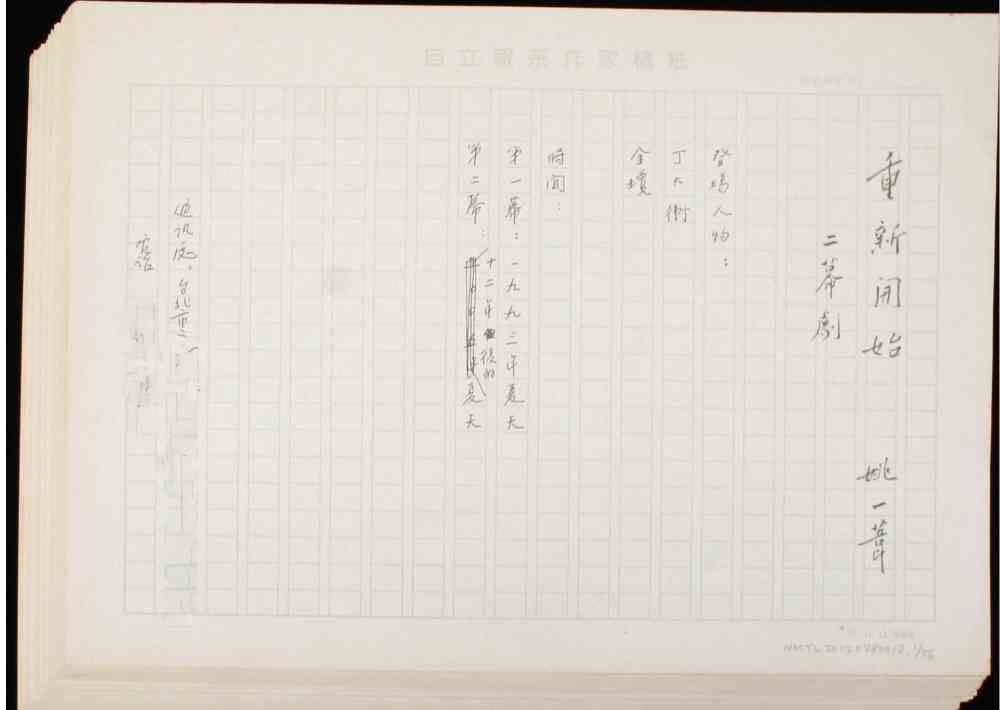 自立報系作家稿紙
重新開始 姚一葦
二幕劇
登場人物：
丁大衛
金瓊
時間：
第一幕：一九九二年夏天
第二幕：十二年後的夏天
通訊處：台北市
電話